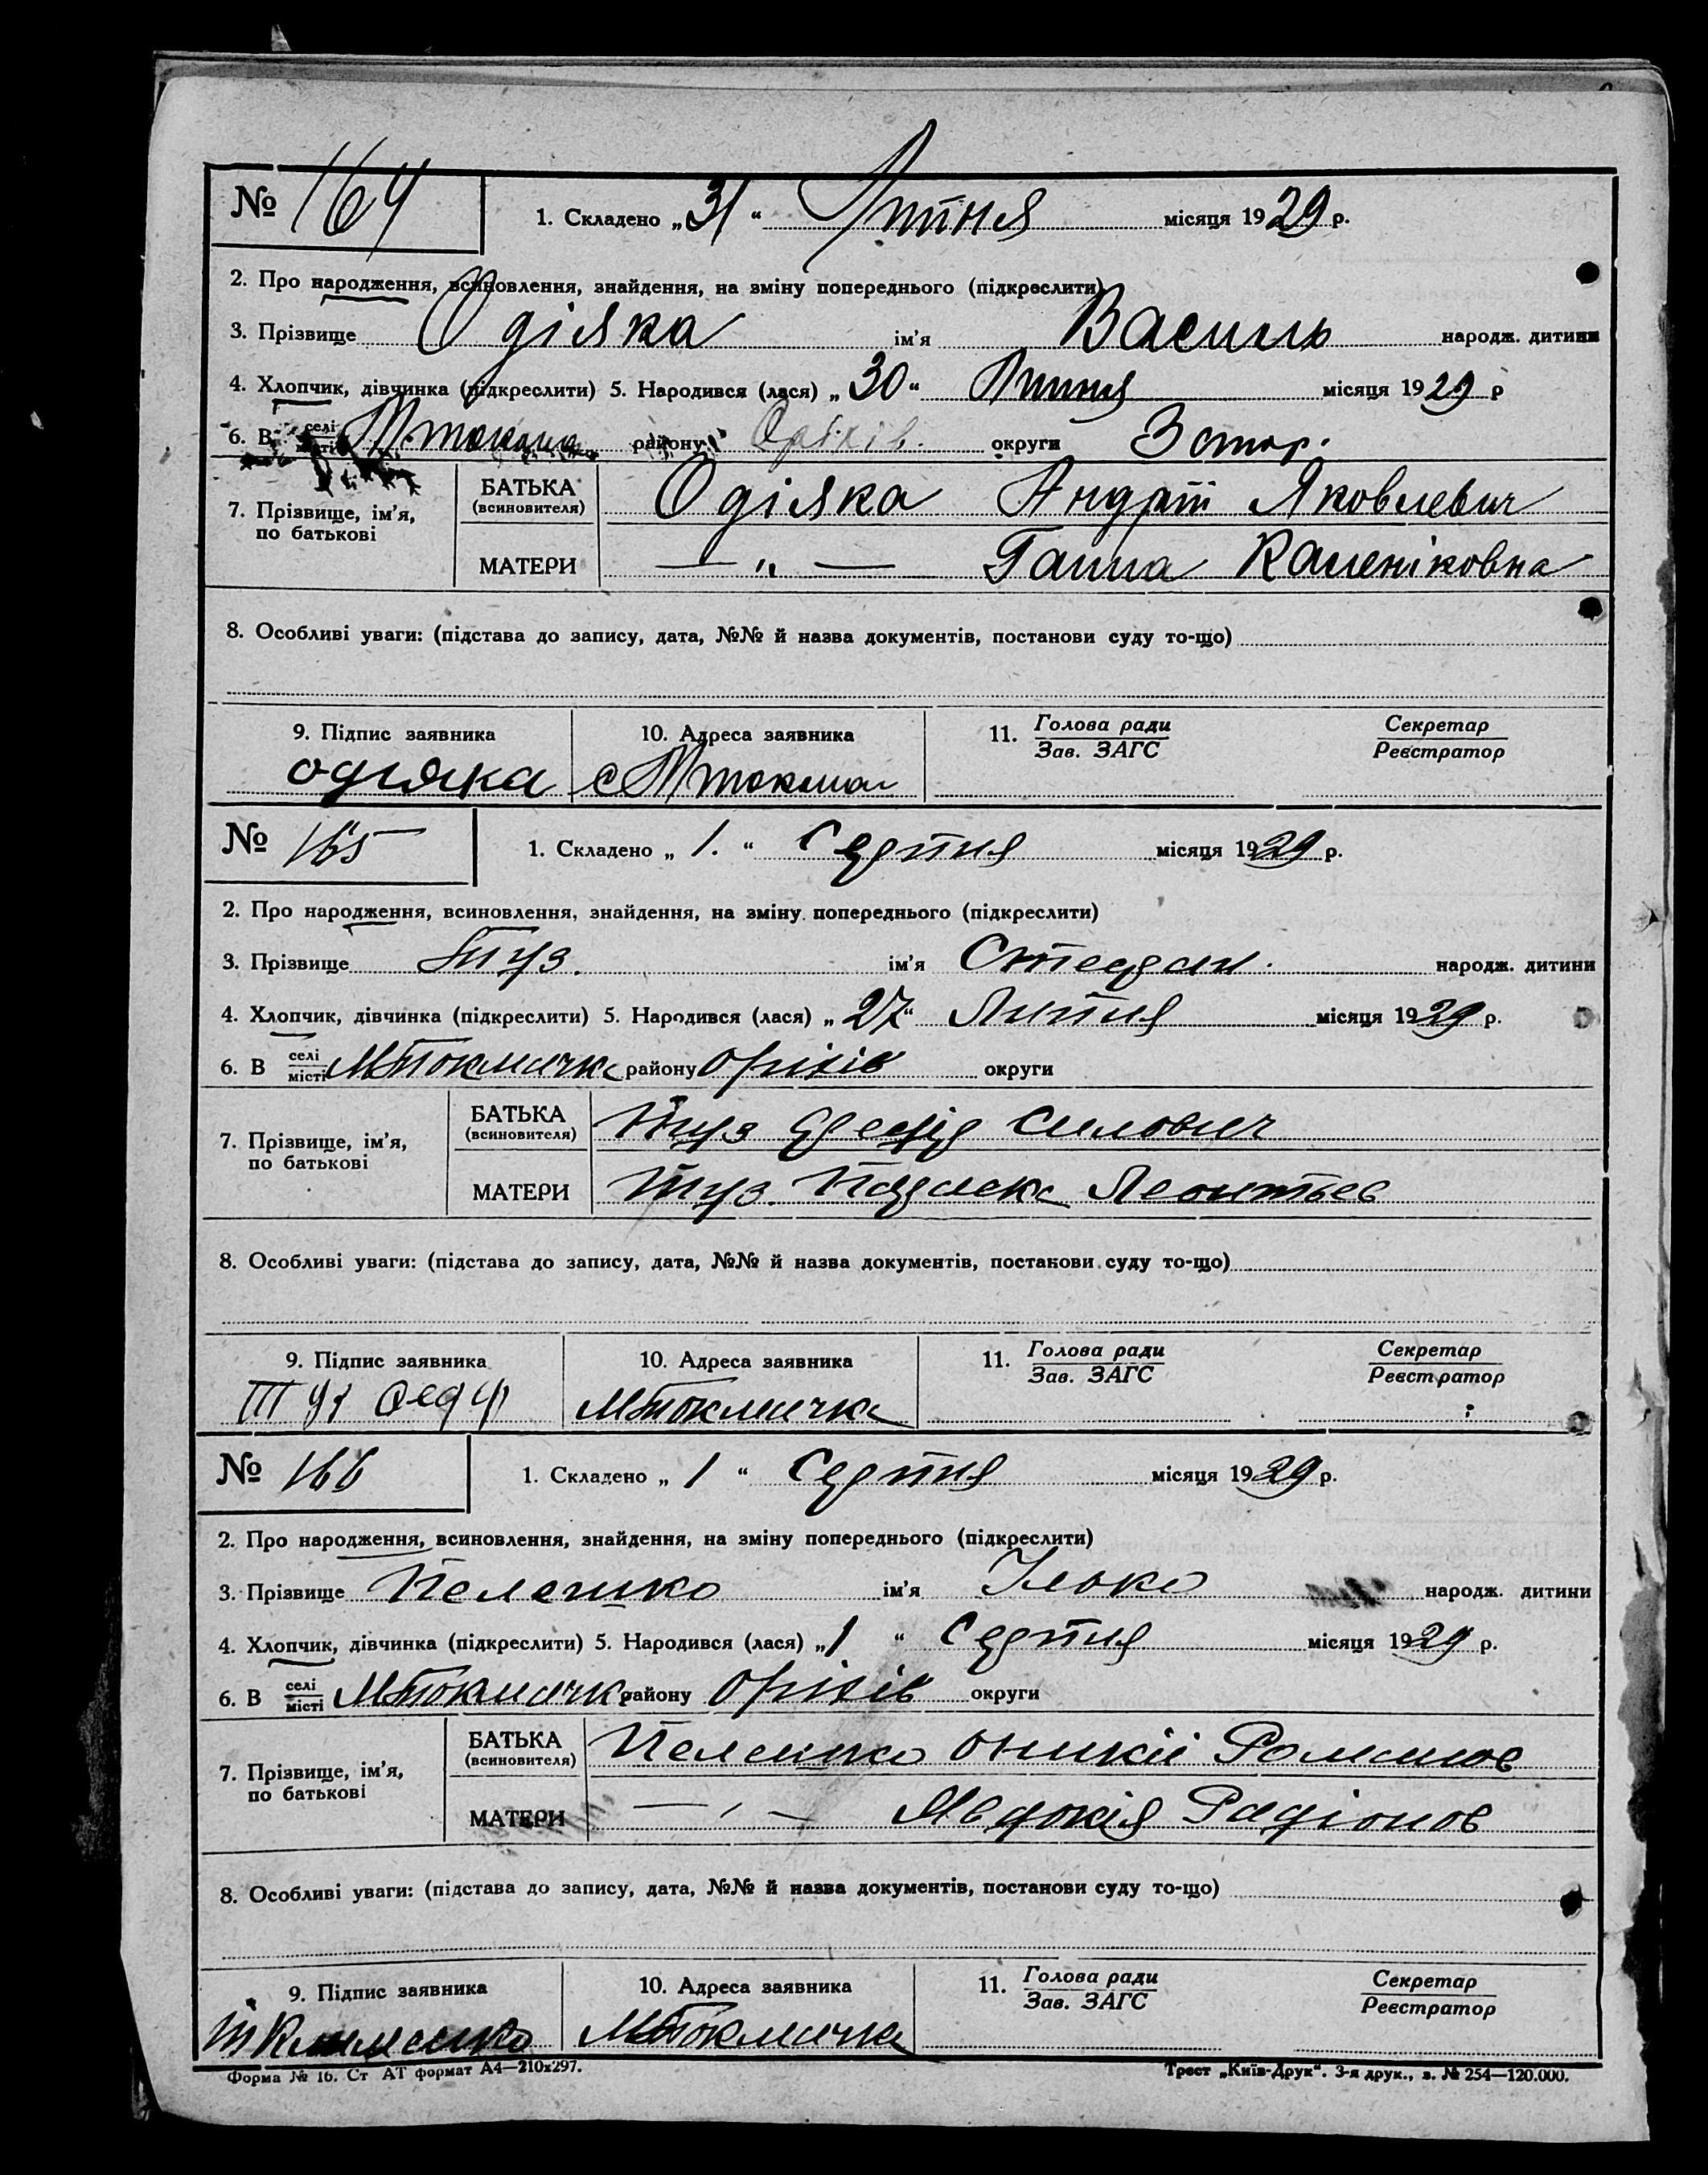 № 164 1. Складено „31“ Липня місяця 1929 р.
2. Про народження, всиновлення, знайдення, на зміну попереднього (підкреслити)
3. Прізвище Одіяка ім'я Василь народж. дитини
4. Хлопчик, дівчинка (підкреслити) 5. Народився (лася) „30“ Липня місяця 1929 р
6. В селі місті району Оріхів. округи Запор.
7. Прізвище, ім'я, по батькові
БАТЬКА (всиновителя) Одіяка Андрій Яковлевич
МАТЕРИ — „ — Ганна Каленіковна
8. Особливі уваги: (підстава до запису, дата, №№ й назва документів, постанови суду то-що)
9. Підпис заявника 10. Адреса заявника 11. Голова ради Зав. ЗАГС Секретар Реєстратор
Одіяка с
№ 165 1. Складено „1.“ Серпня місяця 1929 р.
2. Про народження, всиновлення, знайдення, на зміну попереднього (підкреслити)
3. Прізвище Туз. ім'я Степан. народж. дитини
4. Хлопчик, дівчинка (підкреслити) 5. Народився (лася) „27“ Липня місяця 1929 р.
6. В селі місті МТокмачка району Оріхів округи
7. Прізвище, ім'я, по батькові
БАТЬКА (всиновителя) Туз Силович
МАТЕРИ Туз. Леонтьев
8. Особливі уваги: (підстава до запису, дата, №№ й назва документів, постанови суду то-що)
9. Підпис заявника 10. Адреса заявника 11. Голова ради Зав. ЗАГС Секретар Реєстратор
Туз МТокмачка
№ 166 1. Складено „1“ Серпня місяця 1929 р.
2. Про народження, всиновлення, знайдення, на зміну попереднього (підкреслити)
3. Прізвище Пелешко ім'я Ілько народж. дитини
4. Хлопчик, дівчинка (підкреслити) 5. Народився (лася) „1“ Серпня місяця 1929 р.
6. В селі місті МТокмачка району Оріхів округи
7. Прізвище, ім'я, по батькові
БАТЬКА (всиновителя) Пелешко Оникій Романов
МАТЕРИ — „ — Явдокія Радіонов
8. Особливі уваги: (підстава до запису, дата, №№ й назва документів, постанови суду то-що)
9. Підпис заявника 10. Адреса заявника 11. Голова ради Зав. ЗАГС Секретар Реєстратор
МТокмачка
Форма № 16. Ст АТ формат А4—210х297. Трест „Київ-Друк“. 3-я друк., з. № 254—120.000.